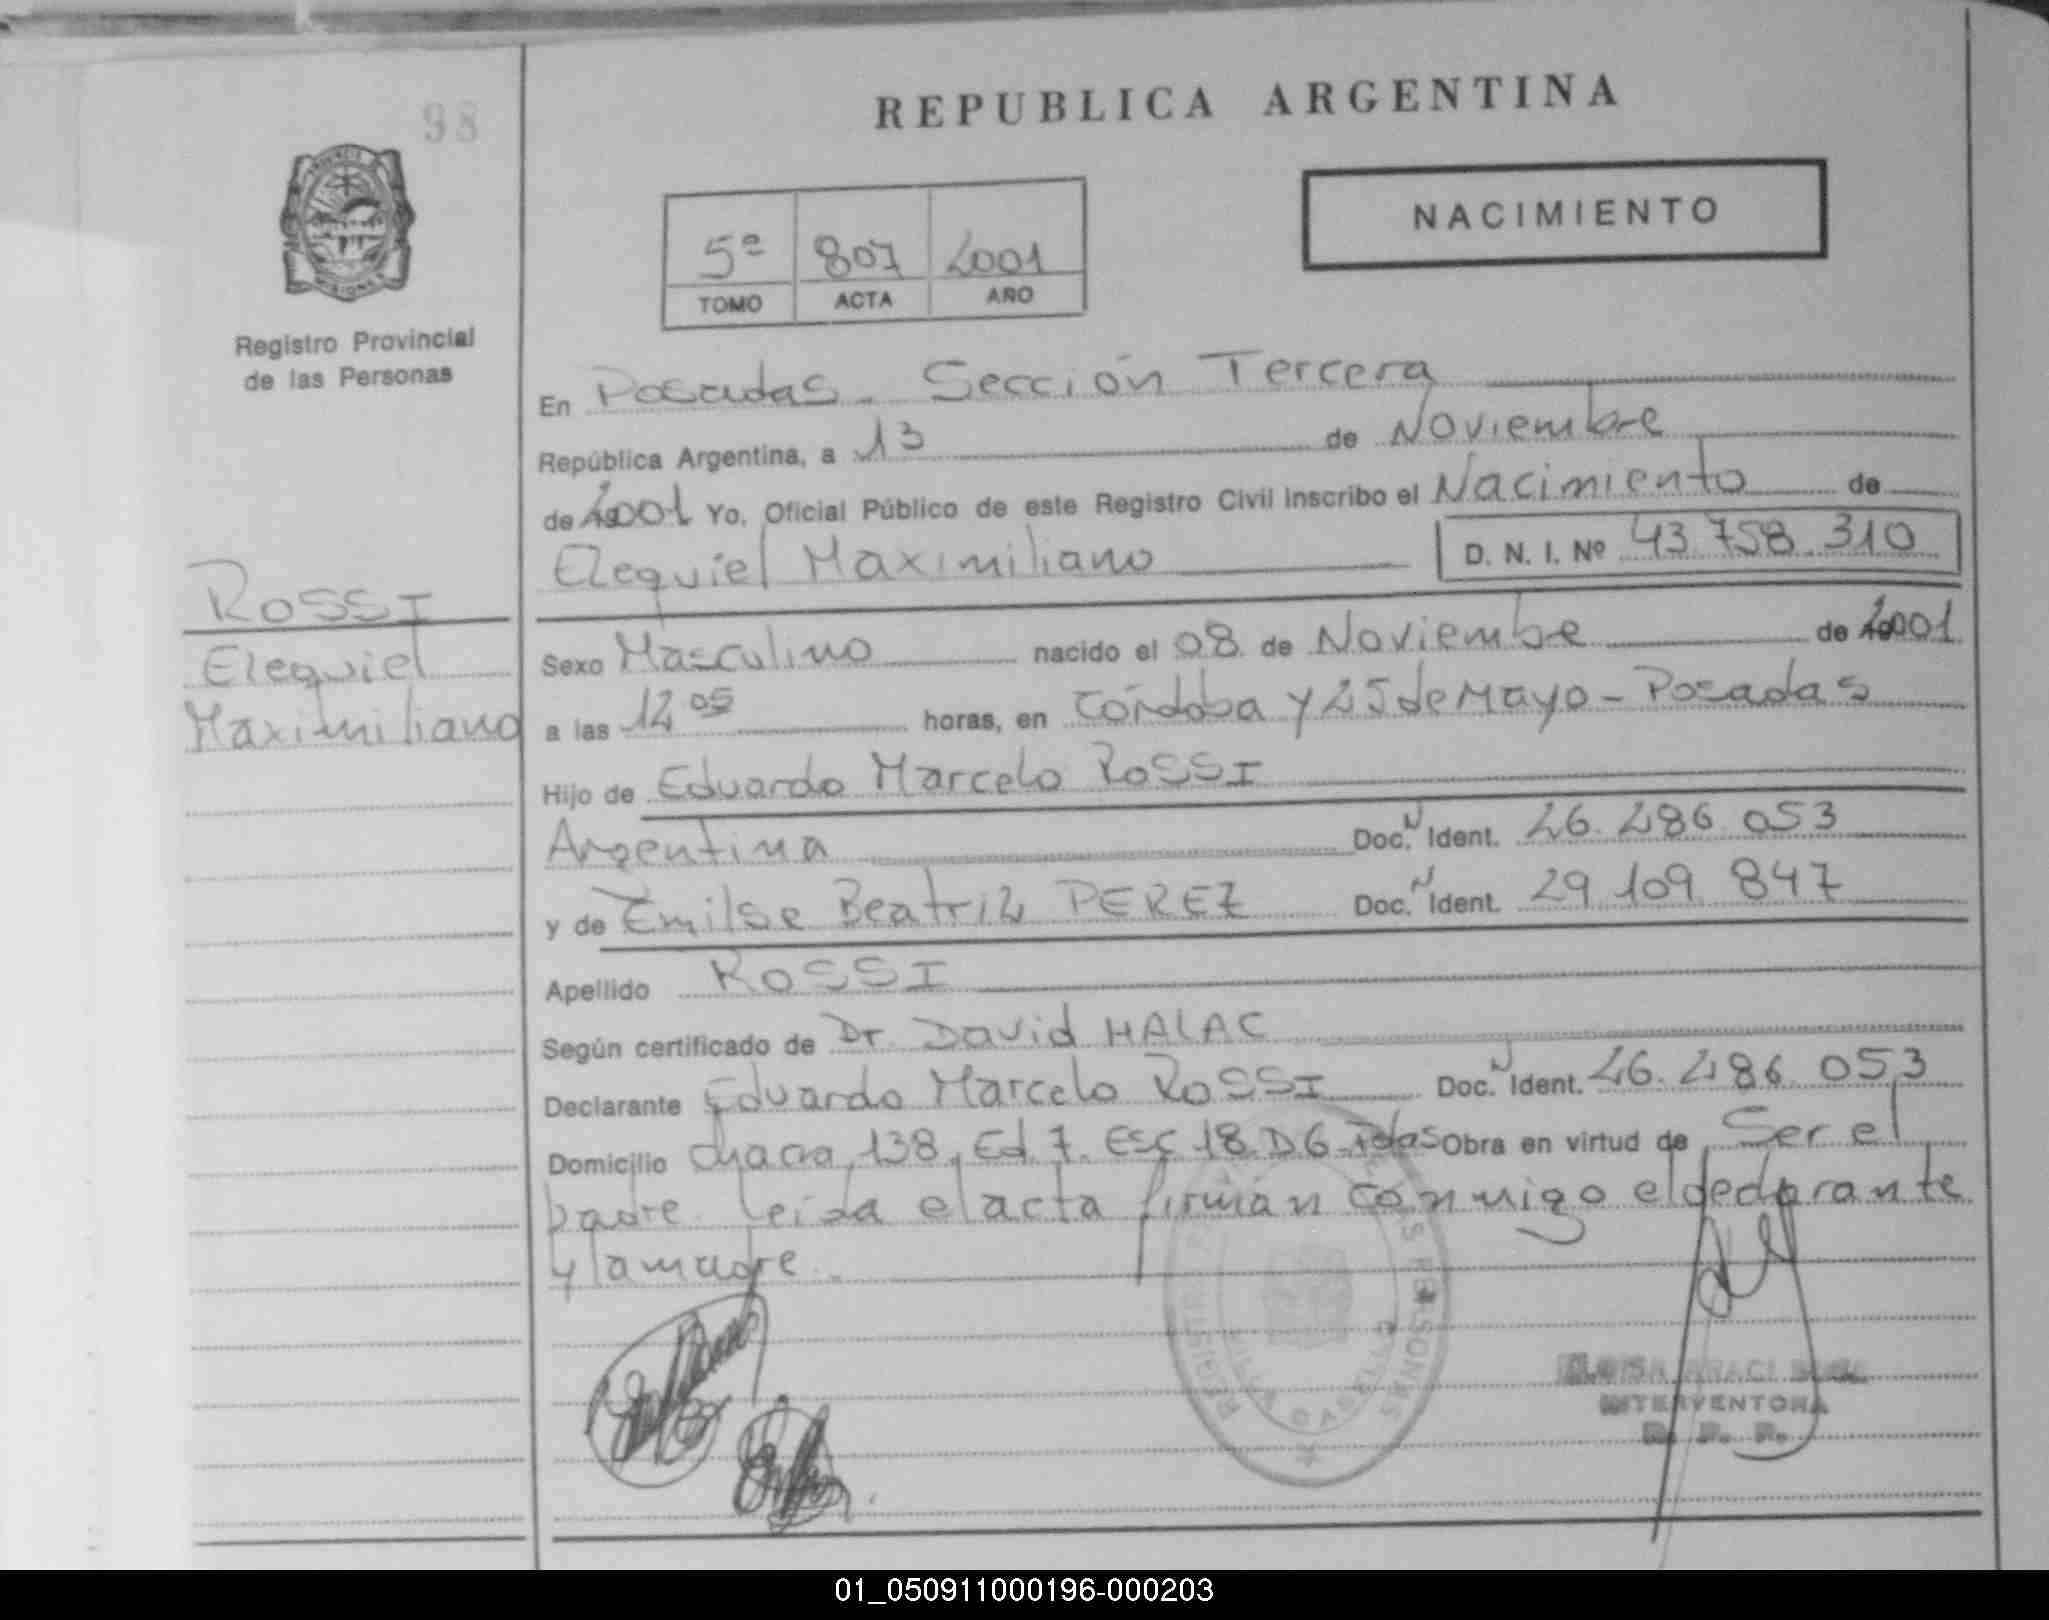 98
REPUBLICA ARGENTINA
NACIMIENTO
5º 807 2001
TOMO ACTA AÑO
Registro Provincial
de las Personas
En Posadas. Sección Tercera
República Argentina, a 13 de Noviembre
de 2001 Yo, Oficial Público de este Registro Civil inscribo el Nacimiento de
Ezequiel Maximiliano D. N. I. Nº 43.758.310
ROSSI
Ezequiel
Maximiliano
Sexo Masculino nacido el 08 de Noviembre de 2001
a las 12 05 horas, en Córdoba y 25 de Mayo - Posadas
Hijo de Eduardo Marcelo ROSSI
Argentina Doc. N Ident. 26.286 053
y de Emilse Beatriz PEREZ Doc. N Ident. 29 109 847
Apellido ROSSI
Según certificado de Dr. David HALAC
Declarante Eduardo Marcelo ROSSI Doc. N Ident. 26.286 053
Domicilio chacra 138, Ed 7. Esc 18. D 6 - Pdas Obra en virtud de Ser el
padre. leida el acta firman conmigo el declarante
y la madre.
REGISTRO PERSONAS
VILLA CABELLO
INTERVENTORA
R. P. P.
01_050911000196-000203